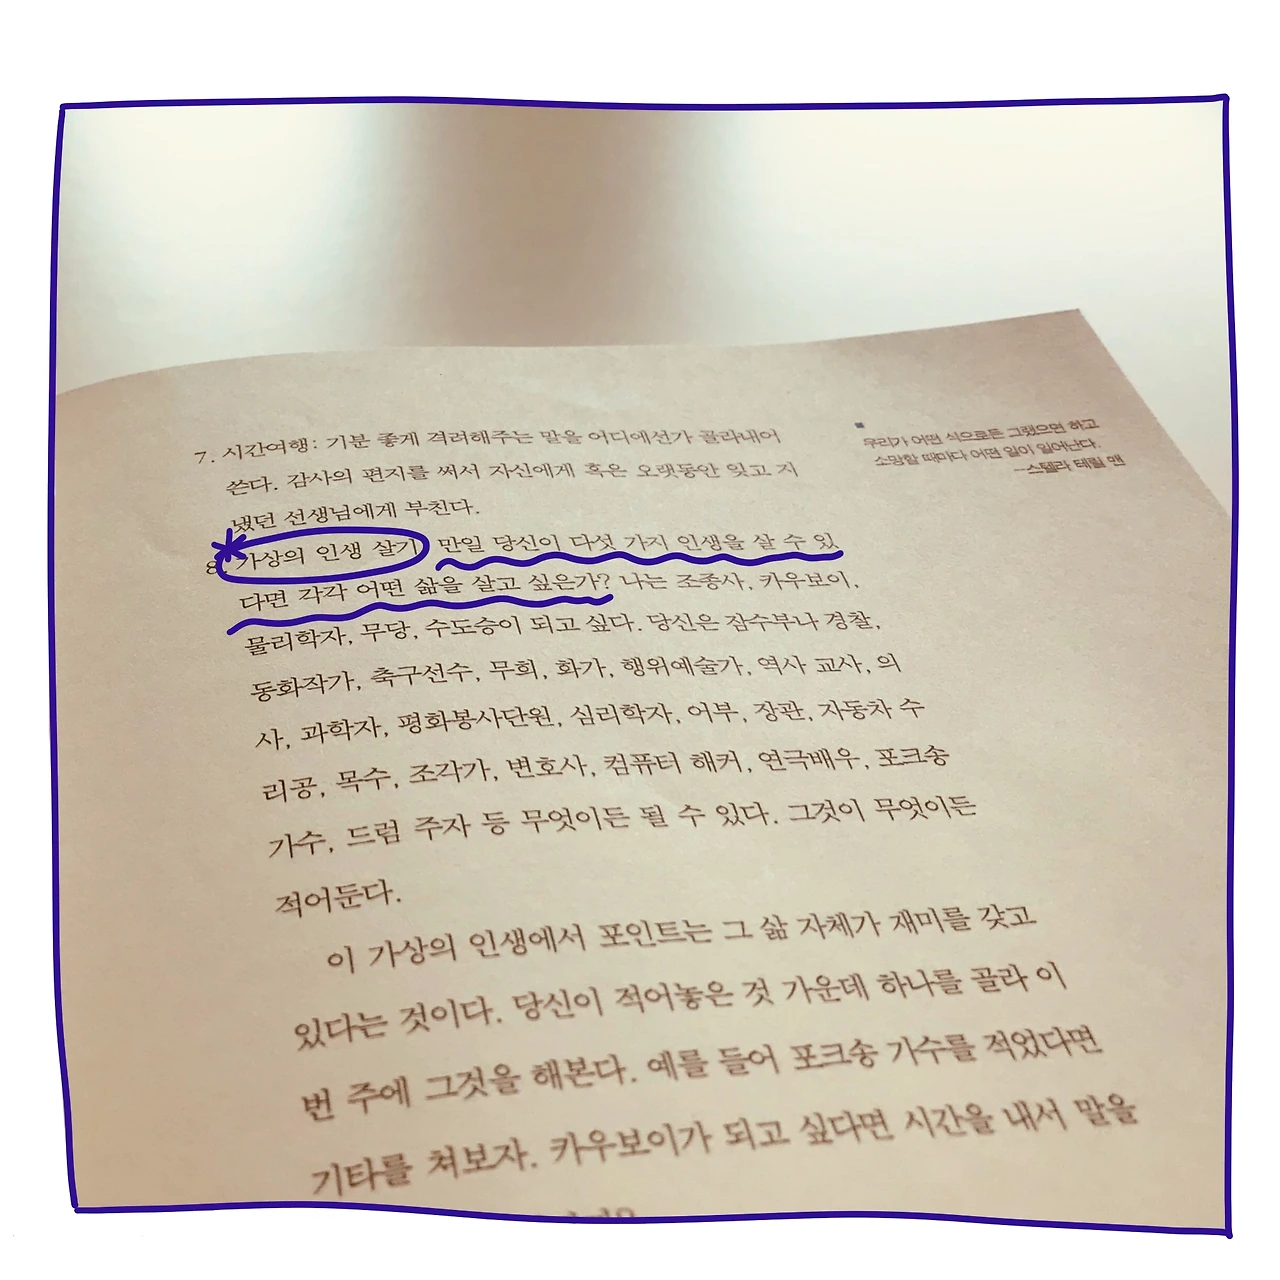 7. 시간여행: 기분 좋게 격려해주는 말을 어디에선가 골라내어
쓴다. 감사의 편지를 써서 자신에게 혹은 오랫동안 잊고 지
냈던 선생님에게 부친다.
8. 가상의 인생 살기 만일 당신이 다섯 가지 인생을 살 수 있
다면 각각 어떤 삶을 살고 싶은가? 나는 조종사, 카우보이,
물리학자, 무당, 수도승이 되고 싶다. 당신은 잠수부나 경찰,
동화작가, 축구선수, 무희, 화가, 행위예술가, 역사 교사, 의
사, 과학자, 평화봉사단원, 심리학자, 어부, 장관, 자동차 수
리공, 목수, 조각가, 변호사, 컴퓨터 해커, 연극배우, 포크송
가수, 드럼 주자 등 무엇이든 될 수 있다. 그것이 무엇이든
적어둔다.
이 가상의 인생에서 포인트는 그 삶 자체가 재미를 갖고
있다는 것이다. 당신이 적어놓은 것 가운데 하나를 골라 이
번 주에 그것을 해본다. 예를 들어 포크송 가수를 적었다면
기타를 쳐보자. 카우보이가 되고 싶다면 시간을 내서 말을
우리가 어떤 식으로든 그랬으면 하고
소망할 때마다 어떤 일이 일어난다.
―스텔라 테릴 맨